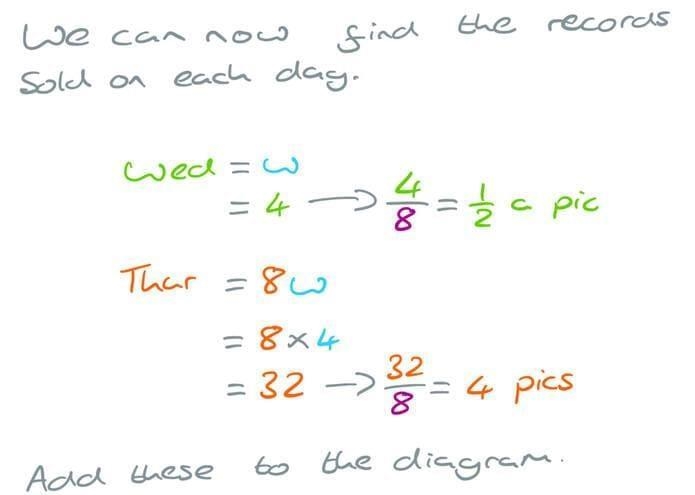 We can now find the records
sold on each day.
Wed = w
= 4 → 4/8 = 1/2 a pic
Thur = 8w
= 8 × 4
= 32 → 32/8 = 4 pics
Add these to the diagram.